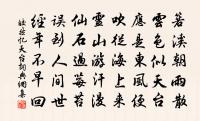 箬溪朝雨散
雲色似天台
應是東風便
吹從海上來
靈山遊汗漫
仙石過莓苔
誤到人間世
經年不早回
憶天台詞典網集